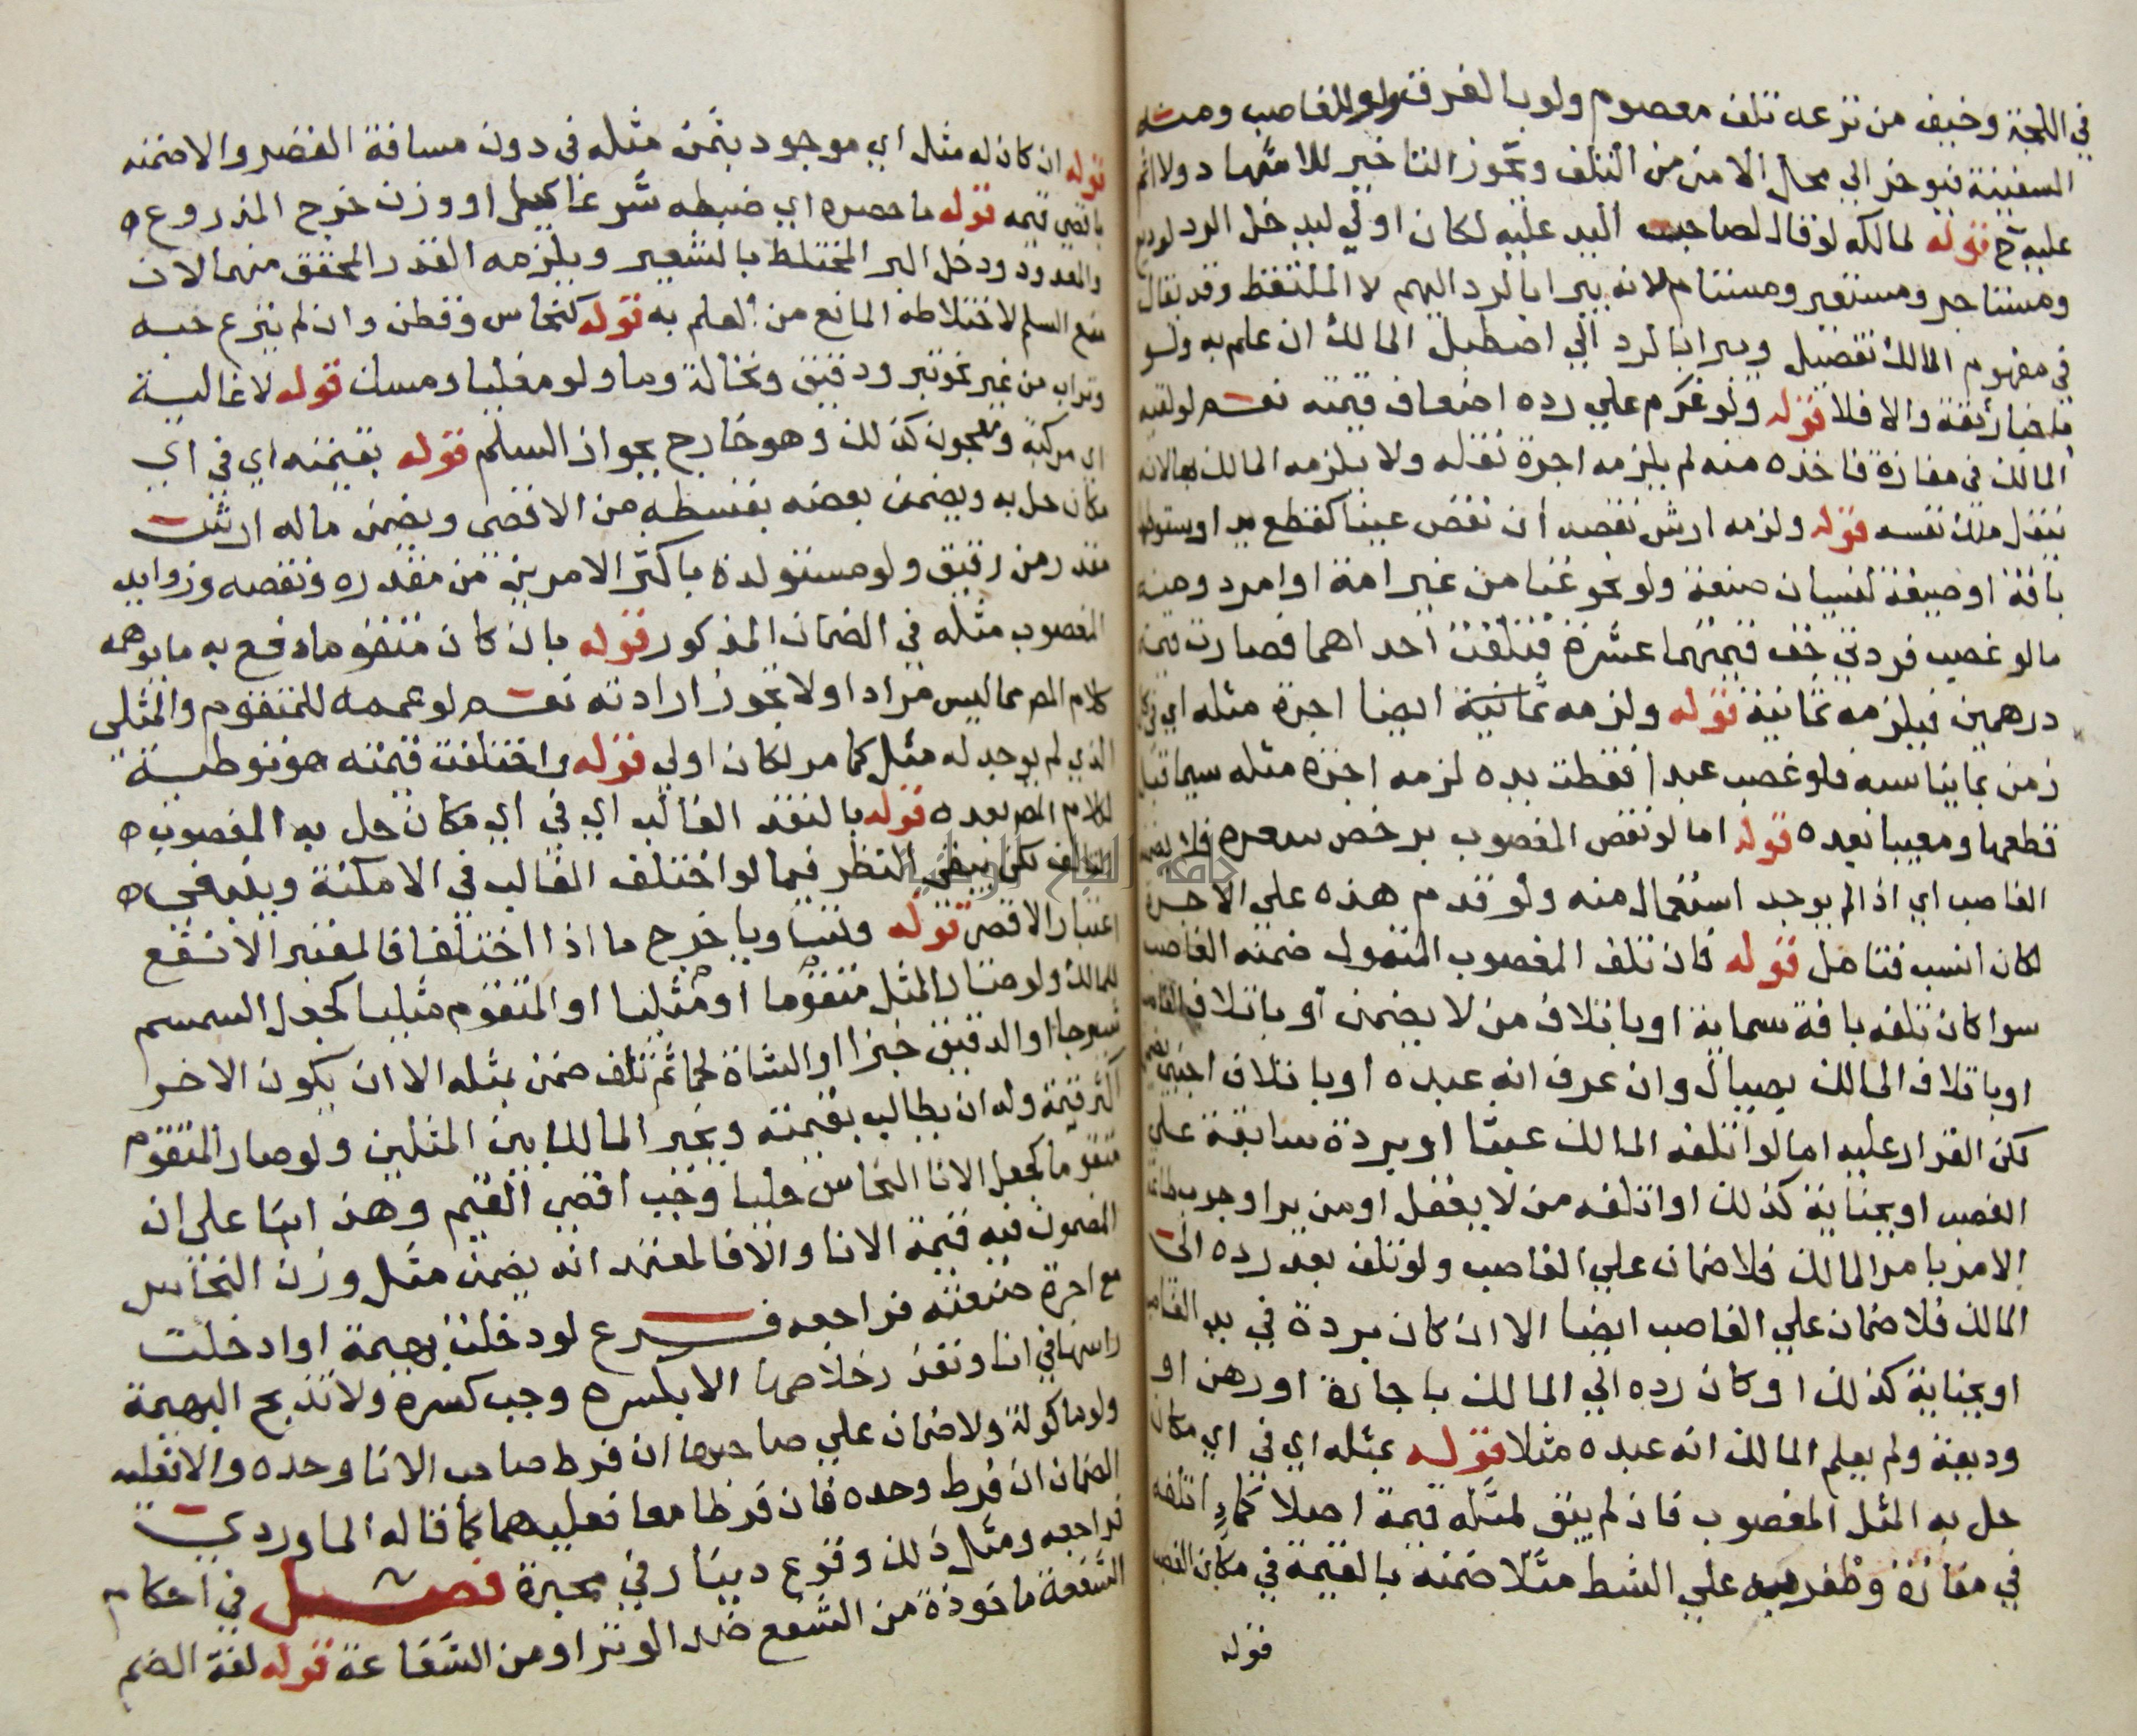 في اللجة وخيف من نزعه تلف معصوم ولو بالغرق ولو للغاصب ومنه
السفينة فيوخر الي محل الامن من التلف ويجوز التاخير للاشهاد ولا اثم
عليه ح قوله لمالكه لو قال لصاحب اليد عليه لكان اولي ليدخل الرد لوديع
ومستاجر ومستعير ومستام لانه يبرا بالرد اليهم لا الملتقط وقد يقال
في مفهوم المالك تفصيل ويبرا بالرد الي اصطبل المالك ان علم به ولو
باخبار ثقة والا فلا قوله ولو غرم علي رده اضعاف قيمته نعم لو لقيه
المالك في مفازة فاخذه منه لم يلزمه اجرة نقله ولا يلزمه المالك بها لانه
ينقل ملك نفسه قوله ولزمه ارش نقصه ان نقص عينا كقطع يد او سقوطها
بافة او صيغة لنسيان صنعة ولو نحو غنا من غير امة او امرد ومنه
ما لو غصب فردتي خف قيمتهما عشرة فتلفت احداهما فصارت قيمة
درهمين فيلزمه ثمانية قوله ولزمه ثمانية ايضا اجرة مثله اي في كل
زمن بما يناسبه فلو غصب عبدا فقطت يده لزمه اجرة مثله سليما قبل
قطعها ومعيبا بعده قوله اما لو نقص المغصوب برخص سعره فلا يضمنه
الغاصب اي اذا لم يوجد استعمال منه ولو قدم هذه علي الاجرة
لكان انسب فتامل قوله فان تلف المغصوب المتمول ضمنه الغاصب
سوا كان تلفه بافة سماية او باتلاف من لا يضمن او باتلاف الغاصب
او باتلاف المالك بصيال وان عرف انه عبده او باتلاف اجنبي
لكن القرار عليه اما لو اتلفه المالك عبثا او بردة سابقة علي
الغصب او بجناية كذلك او اتلفه من لا يعقل او من يرا وجوب طاعة
الامر بامر المالك فلا ضمان علي الغاصب ولو تلف بعد رده الي
المالك فلا ضمان علي الغاصب ايضا الا ان كان بردة في يد الغاصب
او بجناية كذلك او كان رده الي المالك باجارة او رهن او
وديعة ولم يعلم المالك انه عبده مثلا قوله بمثله اي في اي مكان
حل به المثل المغصوب فان لم يبق لمثله قيمة اصلا كماء اتلفه
في مفازة وظفر به علي الشط مثلا ضمنه بالقيمة في مكان الغصب
قوله
قوله ان كان له مثل اي موجود بثمن مثله في دون مسافة القصر والا ضمنه
باقصي قيمه قوله ما حصره اي ضبطه شرعا كيل او وزن خرج المذروع
والمعدود ودخل البر المختلط بالشعير ويلزمه القدر المحقق منهما لان
منع السلم لاختلاطه المانع من العلم به قوله كنحاس وقطن وان لم ينزع حبه
وتراب من غير نحو تبر ودقيق ونخالة وما ولو مغليا ومسك قوله لا غالية
اي مركبة ومعجون كذلك وهو خارج بجواز السلم قوله بقيمته اي في اي
مكان حل به ويضمن بعضه بقسطه من الاقصي ويضمن ما له ارش
مقدر من رقيق ولو مستولدة باكثر الامرين من مقدره ونقصه وزوايد
المغصوب مثله في الضمان المذكور قوله بان كان متقوما دفع به ما يوهمه
كلام المص مما ليس مرادا ولا تجوز ارادته نعم لو عممه للمتقوم والمثلي
الذي لم يوجد له مثل كما مر لكان اولي قوله واختلفت قيمته هو توطية
لكلام المص بعده قوله بالنقد الغالب اي في اي مكان حل به المغصوب
التالف لكن يبقي النظر فيما لو اختلف الغالب في الامكنة وينبغي
اعتبار الاقصي قوله وتساويا خرج ما اذا اختلفا فالمعتبر الانفع
للمالك ولو صار المثل متقوما او مثليا او المتقوم مثليا كجعل السمسم
شيرجا او الدقيق خبزا او الشاة لحما ثم تلف ضمن بمثله الا ان يكون الاخر
اكثر قيمة وله ان يطالب بقيمته ويخير المالك بين المثلين ولو صار المتقوم
متقوما كجعل الانا النحاس حليا وجب اقصي القيم وهذا بنا علي ان
المضمون فيه قيمة الانا والا فالمعتمد انه يضمن مثل وزن النحاس
مع اجرة صنعته فراجعه فرع لو دخلت بهيمة او ادخلت
راسها في انا وتعذر خلاصها الا بكسره وجب كسره ولا تذبح البهيمة
ولو ماكولة ولا ضمان علي صاحبها ان فرط صاحب الانا وحده والا فعليه
الضمان ان فرط وحده فان فرطا معا فعليهما كما قاله الماوردي
فراجعه ومثل ذلك وقوع دينار في محبرة فصل في احكام
الشفعة ماخوذة من الشفع ضد الوتر او من الشفاعة قوله لغة الضم